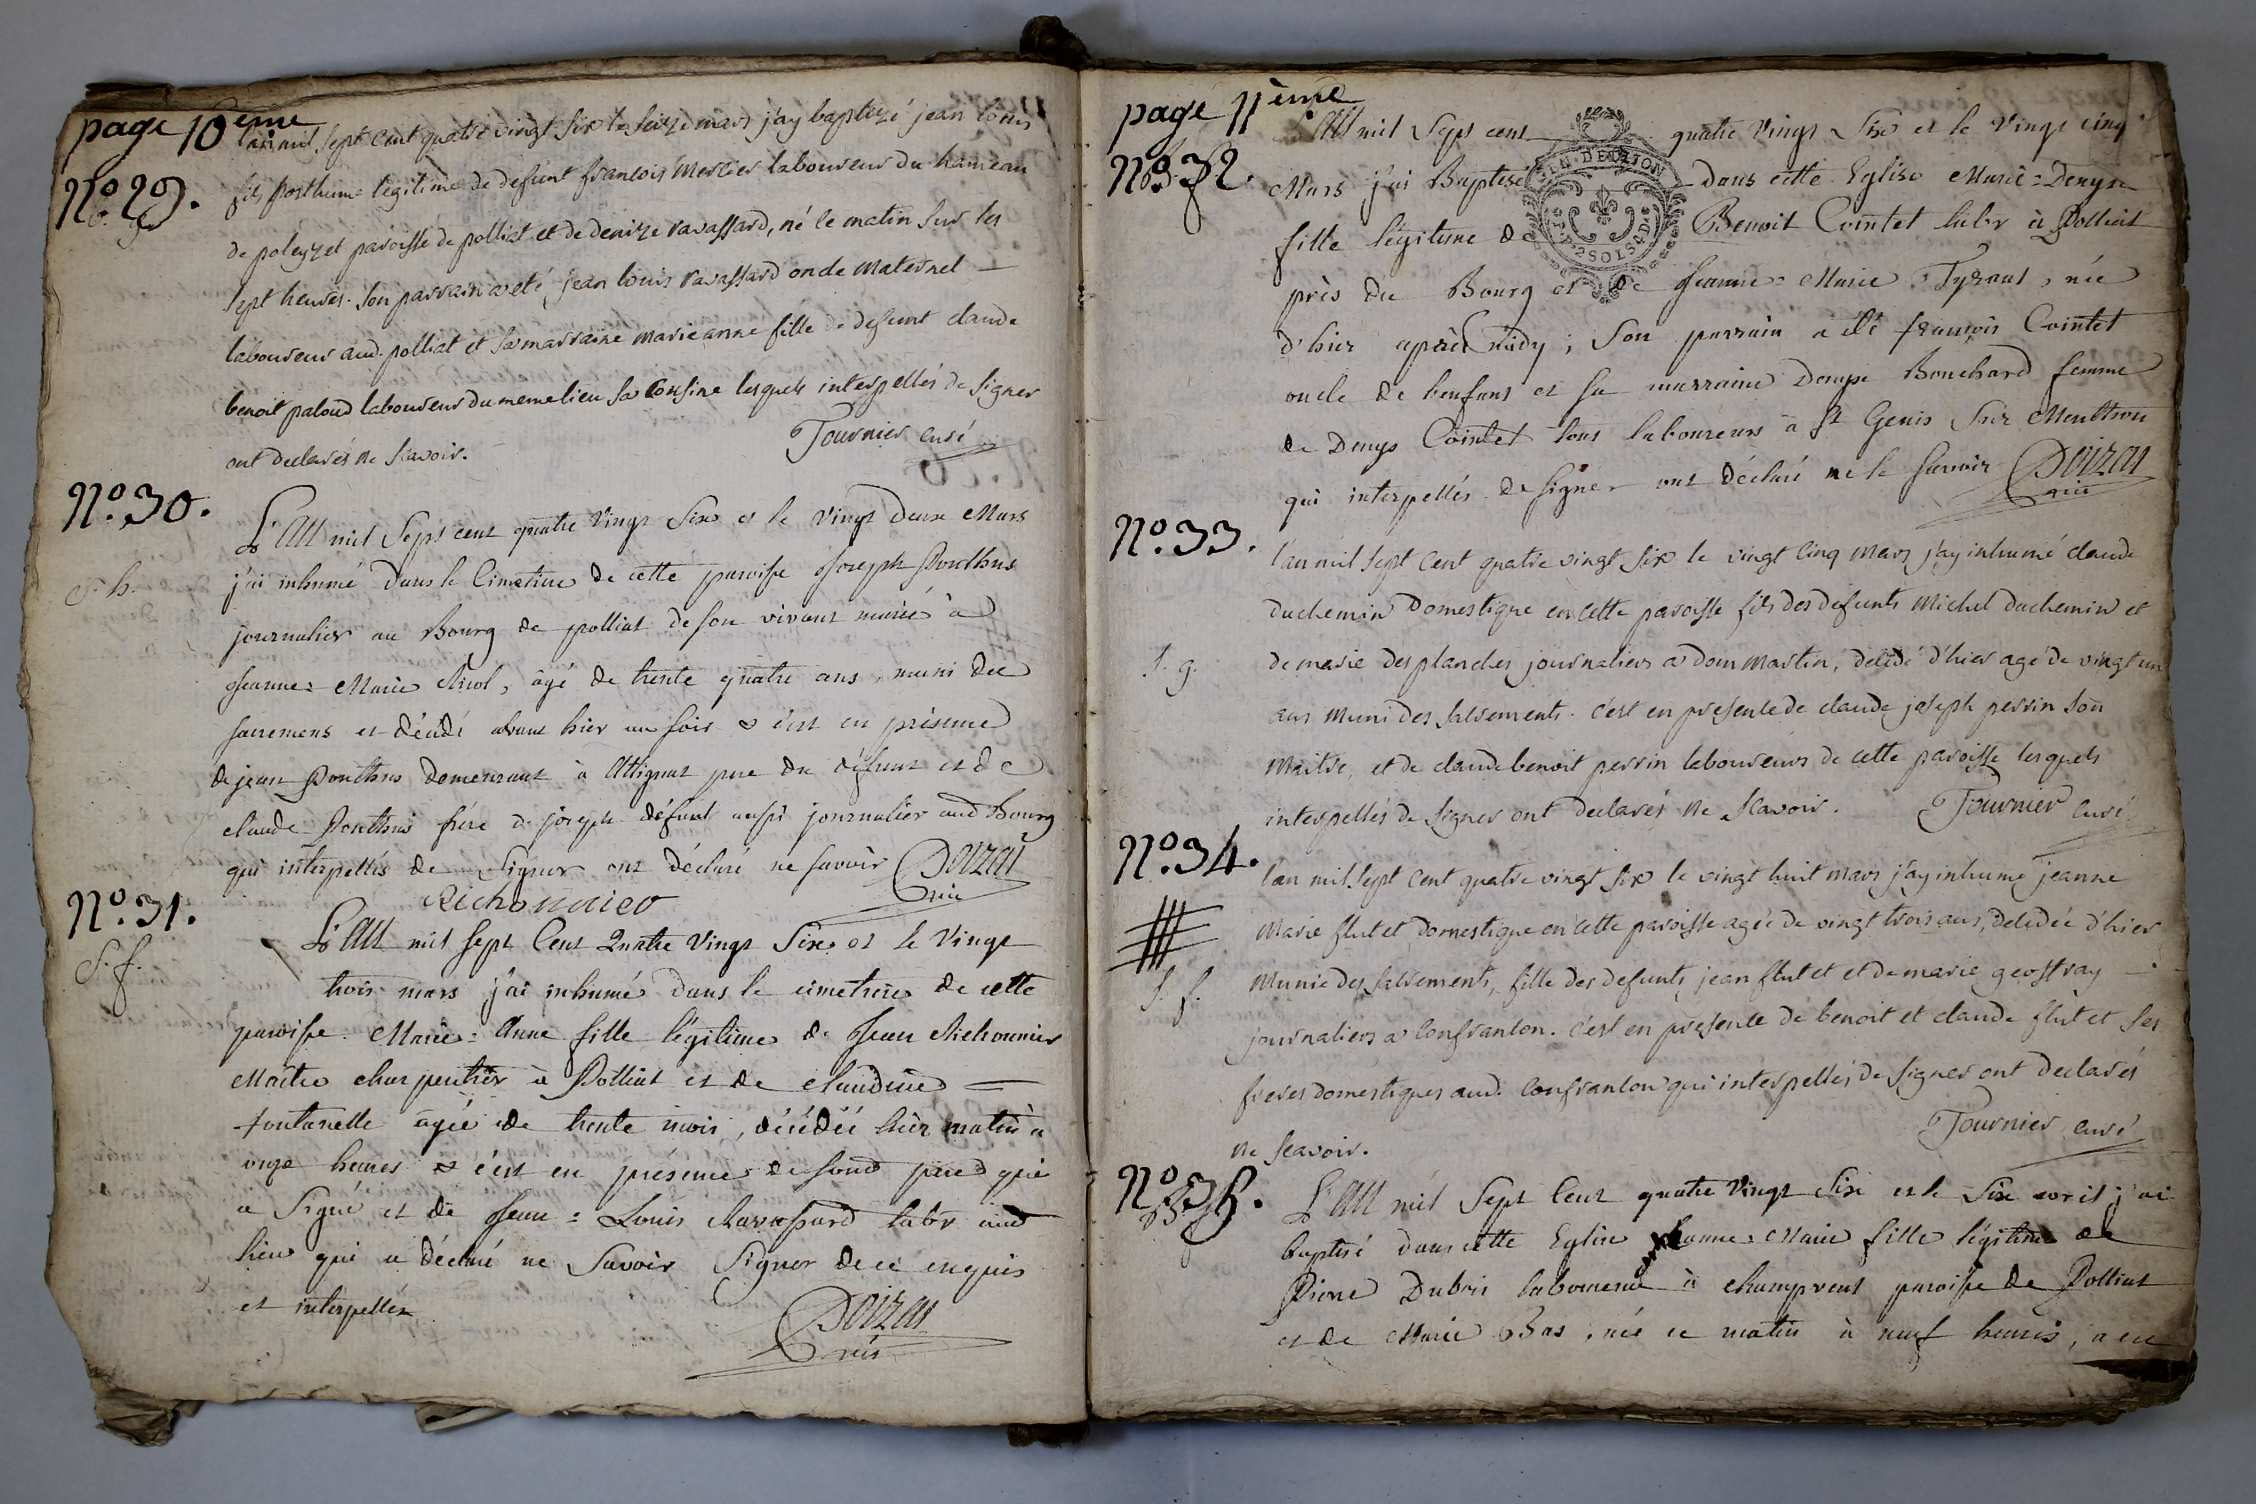 page 10ème
lan mil sept cent quatre vingt six le seize mars j'ay baptizé jean louis
N.º 29.
fils posthume légitime de defunt francois Mercier laboureur du hameau
de poleyzet paroisse de polliat et de denize ravassard, né le matin sur les
sept heures. son parrain a eté jean louis ravassard oncle maternel
laboureur aud. polliat et sa marraine marieanne fille de defunt claude
benoit paloud laboureur du meme lieu sa cousine lesquels interpellés de signer
ont declarés ne scavoir.
Tournier curé
N.º 30.
L'an mil sept cent quatre vingt six et le vingt deux Mars
S. h.
j'ai inhumé dans le Cimetiere de cette paroisse Joseph Ponthus
journalier au Bourg de polliat de son vivant marié à
Jeanne = Marie Nicol, âgé de trente quatre ans muni des
sacremens et décédé avant hier au soir & c'est en présence
de jean Ponthus demeurant à Attignat pere du défunt et de
claude Ponthus frére de joseph défunt aussi journalier aud Bourg
qui interpellés de signer ont déclaré ne savoir Doizat
vic
Richonnier
N.º 31.
L'an mil sept Cent Quatre Vingt Six et le Vingt
S. f.
trois mars j'ai inhumé dans le cimetiere de cette
paroisse Marie = Anne fille légitime de Jean Richonnier
Maître charpentier à Polliat et de claudine
fontanelle agée de trente mois, décédée hier matin à
onze heures & c'est en présence de soud pere qui
a Signé et de Jean = Louis Ravassard labr aud
lieu qui a déclaré ne Savoir Signer de ce enquis
et interpellés
Doizat
vic
page 11ème
L'an mil Sept cent quatre Vingt Six et le Vingt cinq
N.º 32.
GEN. DE DIJON
Mars j'ai Baptisé dans cette Eglise Marie = Denyse
fille légitime de Benoit Cointet labr à Polliat
près du Bourg et de Jeanne = Marie Tyrant, née
d'hier après midy ; Son parrain a été françois Cointet
oncle de l'enfant et sa marraine Denyse Bouchard femme
de Denys Cointet tous laboureurs à St Genis Sur Menthon
qui interpellés de signer ont déclaré ne le savoir Doizat
vic
N.º 33.
l'an mil sept cent quatre vingt six le vingt cinq mars j'ay inhumé claude
duchemin domestique en cette paroisse fils des defunts Michel duchemin et
S. g.
de marie desplanches journaliers a dommartin, decedé d'hier agé de vingt un
ans muni des sacrements. c'est en presence de claude joseph perrin son
maitre, et de claude benoit perrin laboureurs de cette paroisse lesquels
interpellés de signer ont declarés ne scavoir. Tournier curé
N.º 34.
lan mil sept cent quatre vingt six le vingt huit mars j'ay inhumé jeanne
marie flutet domestique en cette paroisse agée de vingt trois ans, decedée d'hier
S. f.
munie des sacrements, fille des defunts jean flutet et de marie geoffray
journaliers a confrançon. c'est en presence de benoit et claude flutet ses
freres domestiques aud. confrançon qui interpellés de signer ont declarés
ne scavoir.
Tournier curé
N.º 35.
L'an mil Sept Cent quatre Vingt Six et le Six avril j'ai
baptisé dans cette Eglise Jeanne = Marie fille légitime de
Pierre Dubois laboureur à champvent paroisse de Polliat
et de Marie Bas, née ce matin à neuf heures, a eu